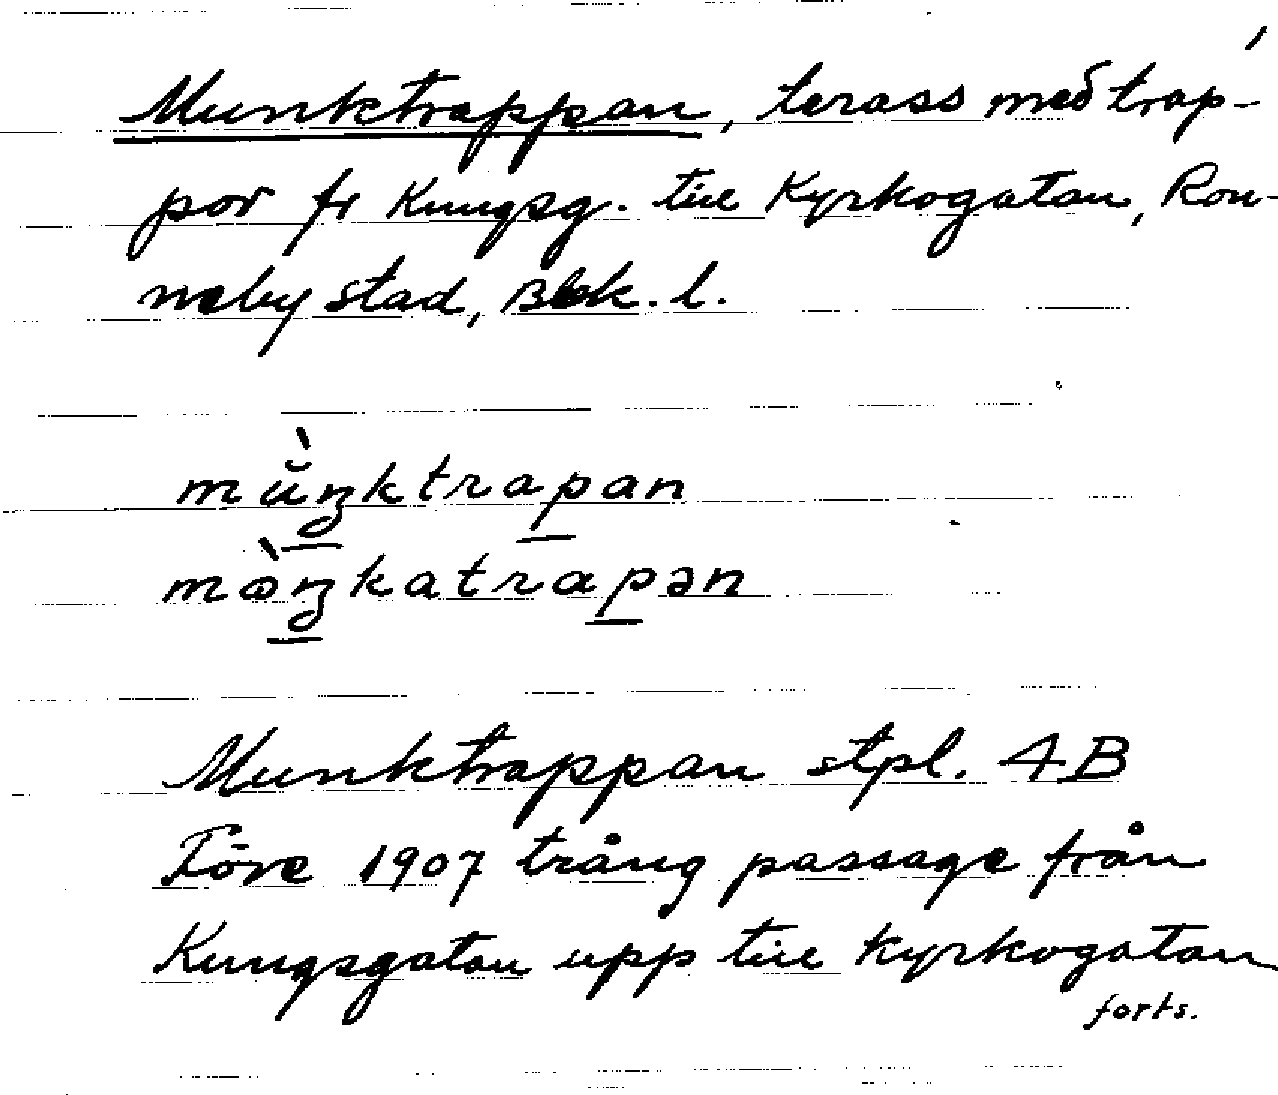 Munktrappan, terass med trap-
por fr Kungsg. till Kyrkogatan, Ron-
neby stad, Blek. l.
mŭ̀ŋktrapan
mὼŋkatrapən
Munktrappan stpl. 4B
Före 1907 trång passage från
Kungsgatan upp till Kyrkogatan
forts.